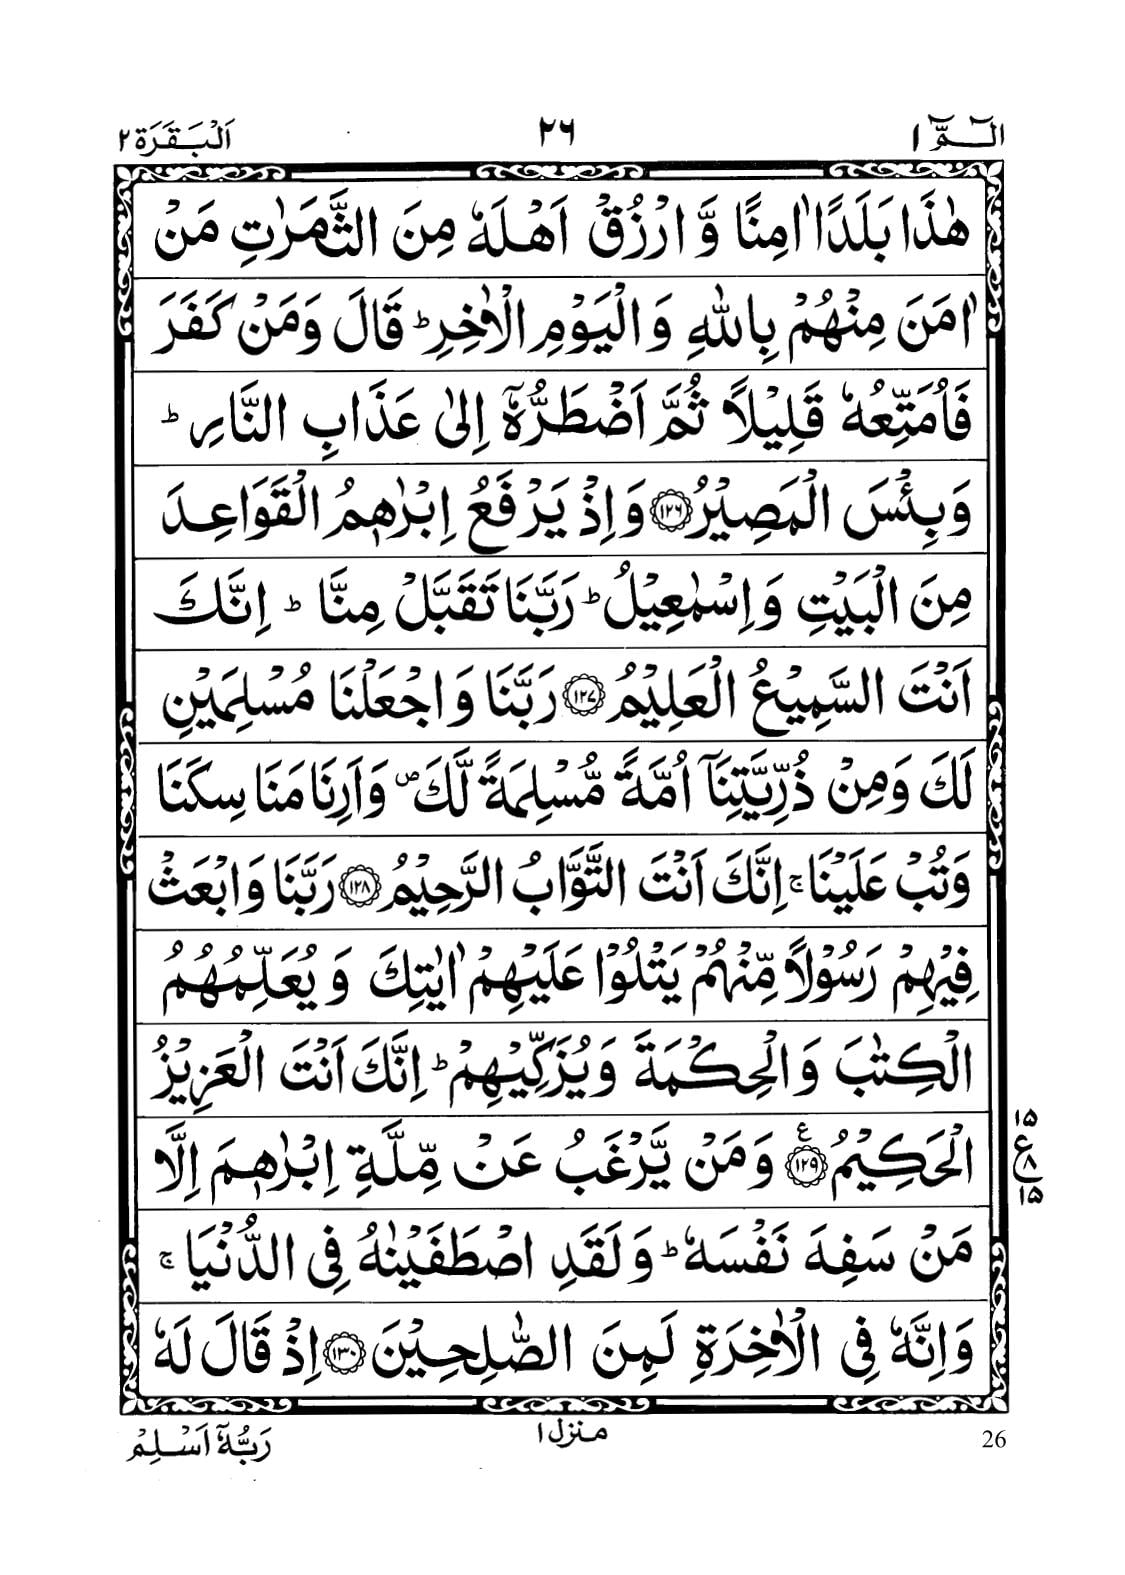 الٓـمّٓ ۱ ۲۶ اَلْبَقَرَة ۲
هٰذَا بَلَدًا اٰمِنًا وَّ ارْزُقْ اَهْلَهٗ مِنَ الثَّمَرٰتِ مَنْ
اٰمَنَ مِنْهُمْ بِاللّٰهِ وَ الْیَوْمِ الْاٰخِرِ ؕ قَالَ وَمَنْ كَفَرَ
فَاُمَتِّعُهٗ قَلِیْلًا ثُمَّ اَضْطَرُّهٗۤ اِلٰی عَذَابِ النَّارِ ؕ
وَبِئْسَ الْمَصِیْرُ ﴿۱۲۶﴾ وَ اِذْ یَرْفَعُ اِبْرٰهٖمُ الْقَوَاعِدَ
مِنَ الْبَیْتِ وَ اِسْمٰعِیْلُ ؕ رَبَّنَا تَقَبَّلْ مِنَّا ؕ اِنَّكَ
اَنْتَ السَّمِیْعُ الْعَلِیْمُ ﴿۱۲۷﴾ رَبَّنَا وَ اجْعَلْنَا مُسْلِمَیْنِ
لَكَ وَمِنْ ذُرِّیَّتِنَاۤ اُمَّةً مُّسْلِمَةً لَّكَ ۪ وَاَرِنَا مَنَاسِكَنَا
وَتُبْ عَلَیْنَا ۚ اِنَّكَ اَنْتَ التَّوَّابُ الرَّحِیْمُ ﴿۱۲۸﴾ رَبَّنَا وَ ابْعَثْ
فِیْهِمْ رَسُوْلًا مِّنْهُمْ یَتْلُوْا عَلَیْهِمْ اٰیٰتِكَ وَ یُعَلِّمُهُمُ
الْكِتٰبَ وَ الْحِكْمَةَ وَ یُزَكِّیْهِمْ ؕ اِنَّكَ اَنْتَ الْعَزِیْزُ
الْحَكِیْمُ ﴿۱۲۹﴾ ع وَ مَنْ یَّرْغَبُ عَنْ مِّلَّةِ اِبْرٰهٖمَ اِلَّا
۱۵
ع ۸
۱۵
مَنْ سَفِهَ نَفْسَهٗ ؕ وَ لَقَدِ اصْطَفَیْنٰهُ فِی الدُّنْیَا ۚ
وَ اِنَّهٗ فِی الْاٰخِرَةِ لَمِنَ الصّٰلِحِیْنَ ﴿۱۳۰﴾ اِذْ قَالَ لَهٗ
26 منزل ۱ رَبُّهٗۤ اَسْلِمْ